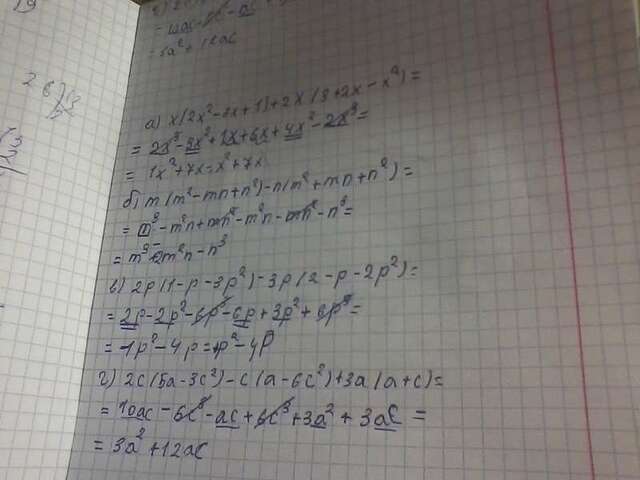 = 3a² + 12ac
а) x(2x² - 3x + 1) + 2x(3 + 2x - x²) =
= 2x³ - 3x² + 1x + 6x + 4x² - 2x³ =
= 1x² + 7x = x² + 7x
б) m(m² - mn + n²) - n(m² + mn + n²) =
= m³ - m²n + mn² - m²n - mn² - n³ =
= m³ - 2m²n - n³
в) 2p(1 - p - 3p²) - 3p(2 - p - 2p²) =
= 2p - 2p² - 6p³ - 6p + 3p² + 6p³ =
= 1p² - 4p = p² - 4p
г) 2c(5a - 3c²) - c(a - 6c²) + 3a(a + c) =
= 10ac - 6c³ - ac + 6c³ + 3a² + 3ac =
= 3a² + 12ac